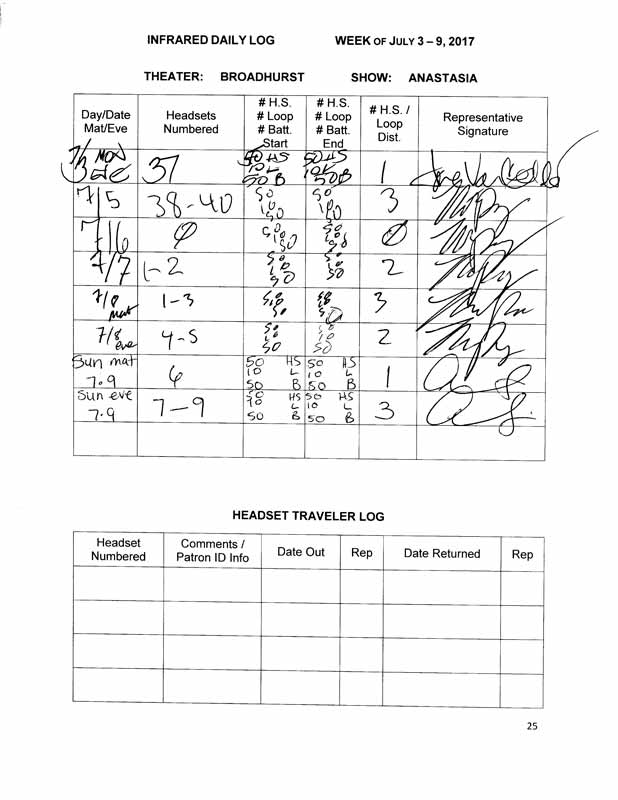 INFRARED DAILY LOG WEEK OF JULY 3 – 9, 2017
THEATER: BROADHURST SHOW: ANASTASIA
Day/Date Mat/Eve
Headsets Numbered
# H.S. # Loop # Batt. Start
# H.S. # Loop # Batt. End
# H.S. / Loop Dist.
Representative Signature
7/3 MON EVE 37 50 HS 10 L 50 B 50 HS 10 L 50 B 1
7/5 38-40 50 10 50 50 10 50 3
7/6 0 50 10 50 50 10 50 0
7/7 1-2 50 10 50 50 10 50 2
7/8 mat 1-3 50 10 50 50 10 50 3
7/8 eve 4-5 50 10 50 50 10 50 2
Sun mat 7.9 6 50 HS 10 L 50 B 50 HS 10 L 50 B 1
Sun eve 7.9 7-9 50 HS 10 L 50 B 50 HS 10 L 50 B 3
HEADSET TRAVELER LOG
Headset Numbered
Comments / Patron ID Info
Date Out
Rep
Date Returned
Rep
25